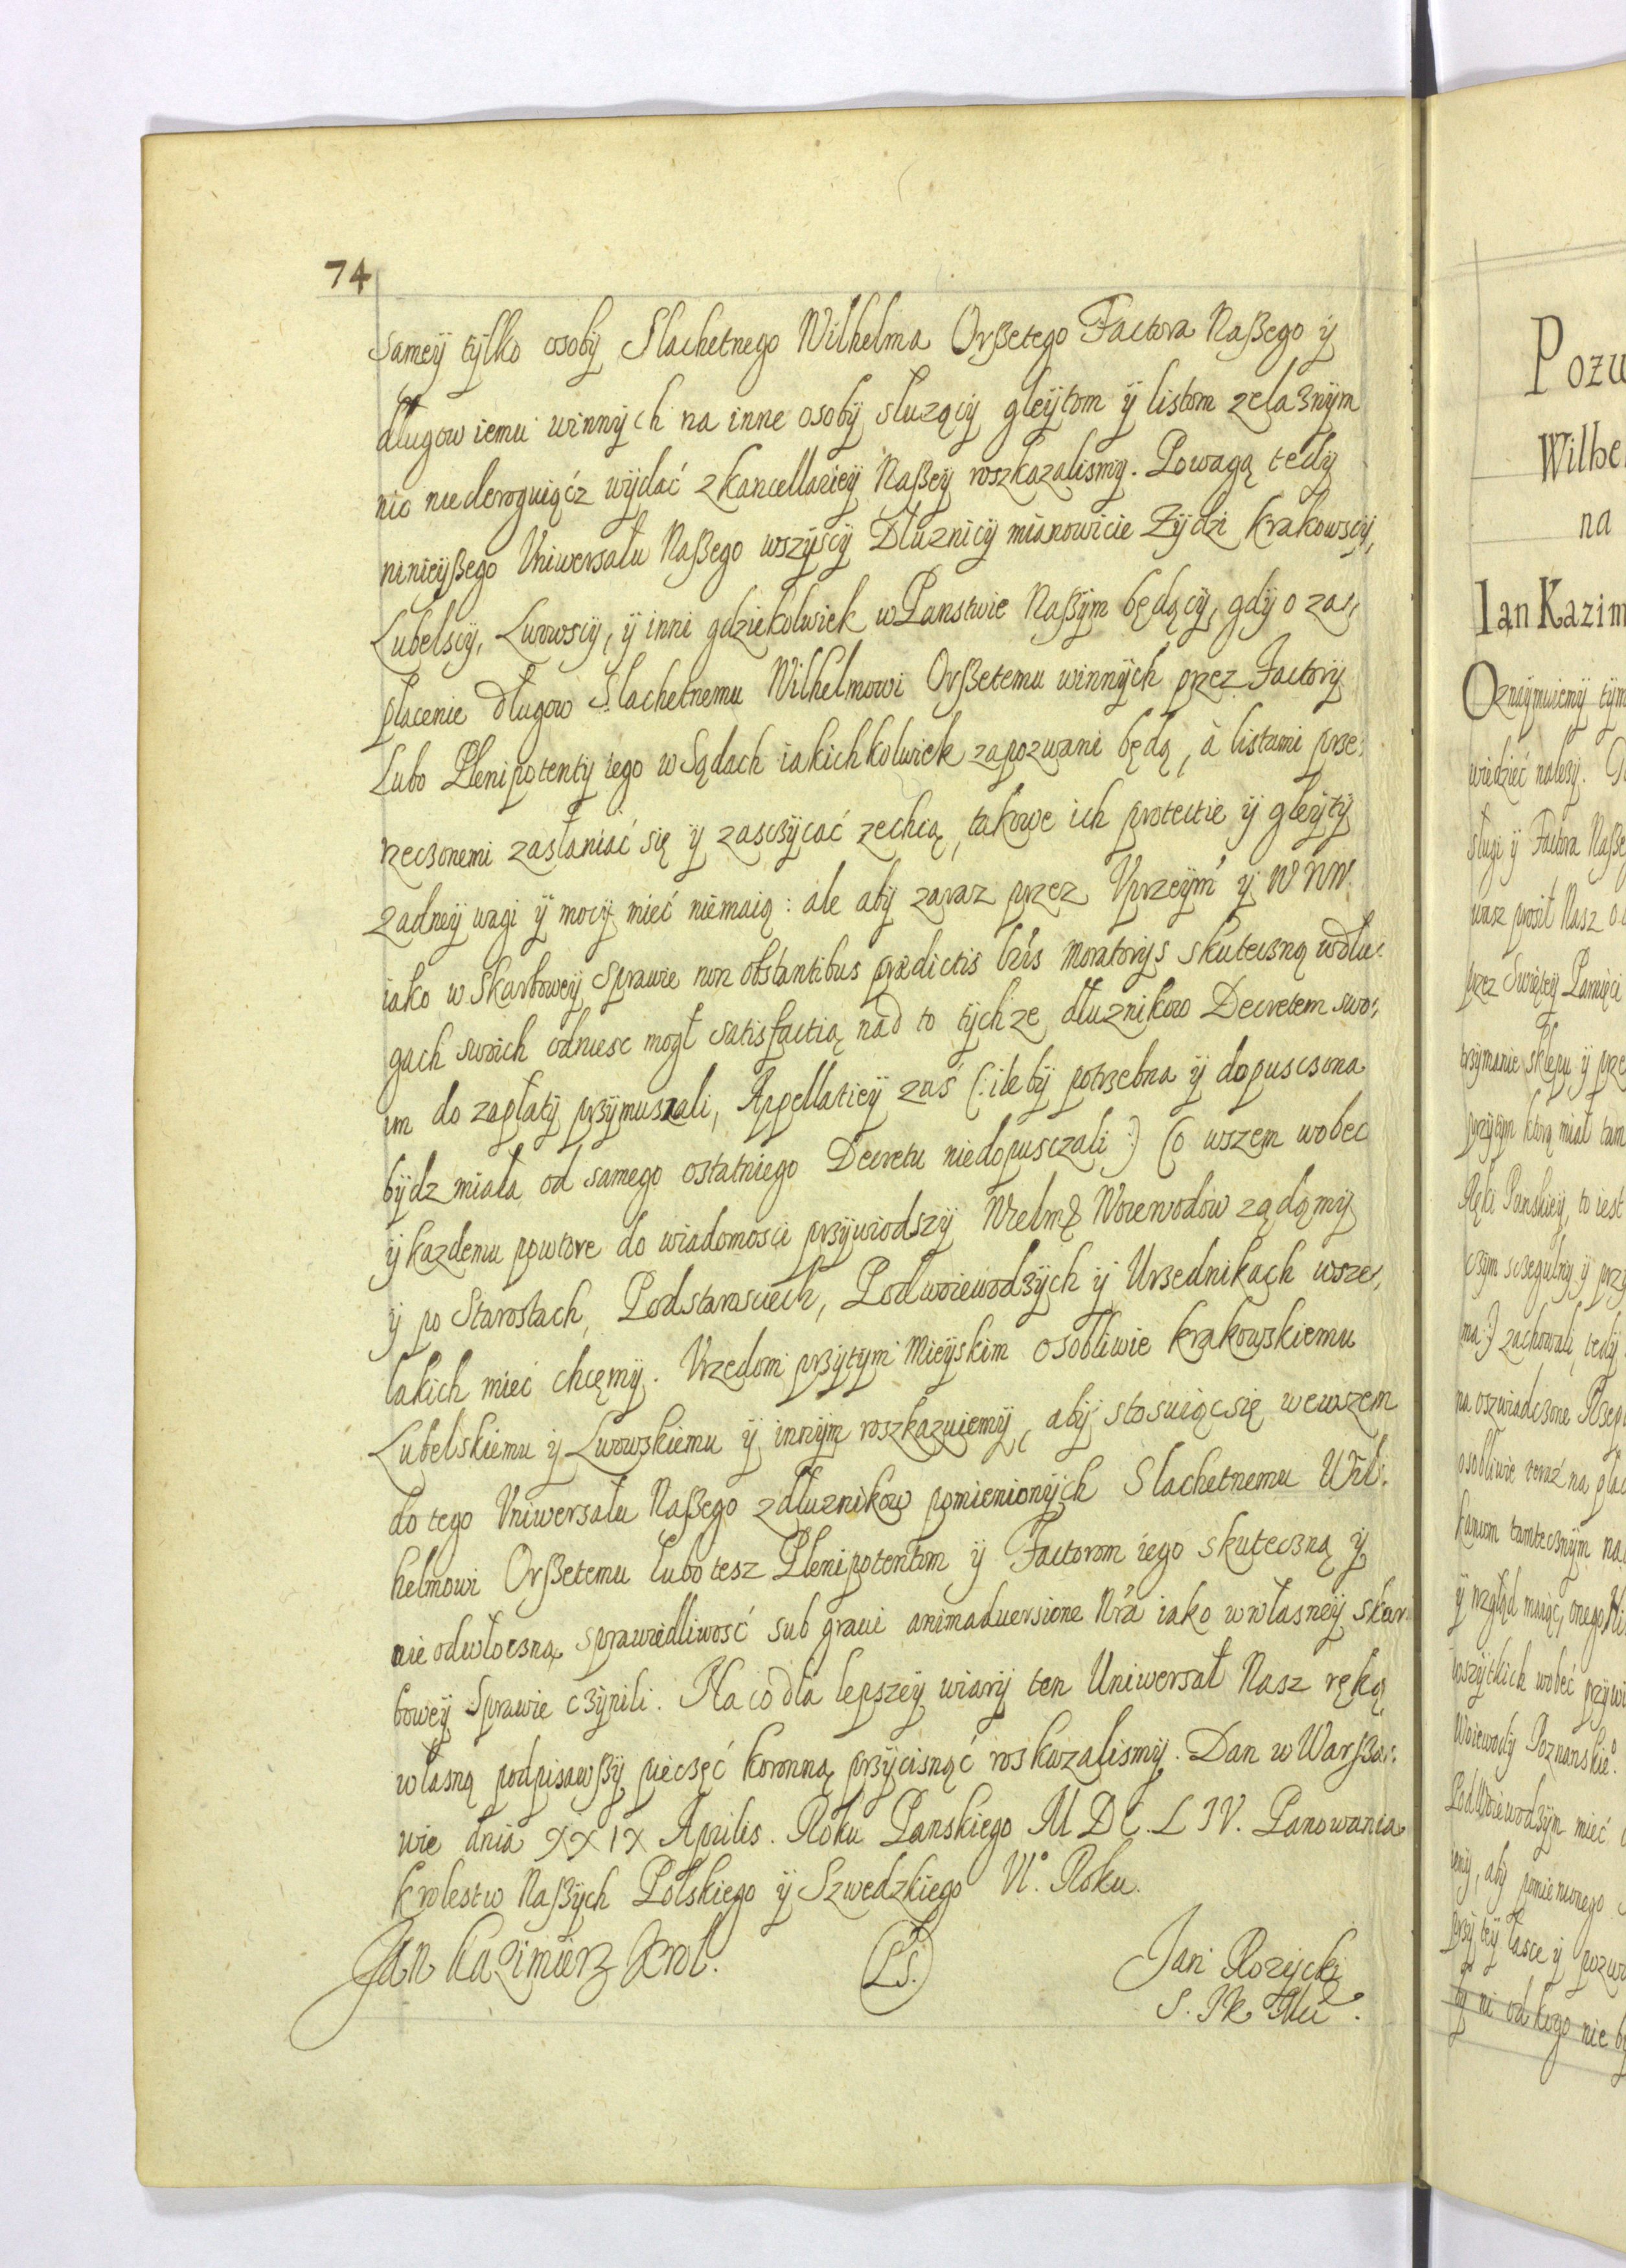 74
samey tylko osoby Slachetnego Wilhelma Orßetego Factora Naßego ÿ
długow iemu winnÿch na inne osobÿ sluzącÿ gleÿtom ÿ listom zelaznÿm
nic niederoguiącz wÿdać z kancellarieÿ Naßeÿ roszkazalismÿ. Powagą tedÿ
ninieÿßego Vniwersału Naßego wszÿscÿ Dłuznicÿ mianowicie Zÿdzi krakowscÿ,
Lubelscÿ, Lwowscÿ, ÿ inni gdziekolwiek w Panstwie Naßÿm będącÿ, gdÿ o za:
płacenie długow Slachetnemu Wilhelmowi Orßetemu winnÿch przez Factorÿ
Lubo Plenipotentÿ iego w Sądach iakichkolwiek zapozwani będą, à listami prze:
rzeczonemi zasłaniać się ÿ zasczÿcać zechcą, takowe ich protectie ÿ gleÿtÿ
zadneÿ wagi ÿ mocÿ mieć niemaią: ale abÿ zaraz przez Vprzeÿm ÿ W NW.
iako w Skarboweÿ Sprawie non obstantibus prædictis lris moratorÿs skuteczną w dłu:
gach swoich odniesc mogł satisfactią nad to tÿchze dłuznikow Decretem swo:
im do zapłatÿ przÿmuszali, Appellatieÿ zaś (: ile bÿ potrzebna ÿ dopusczona
bÿdz miała od samego ostatniego Decretu niedopusczali :) Co wszem wobec
ÿ kazdemu powtore do wiadomosci przÿwiodszÿ Wielm Woiewodow ządamÿ
ÿ po Starostach, Podstarosciech, Podwoiewodzÿch ÿ Urzednikach wsze:
lakich mieć chcęmÿ. Vrzedom przÿtÿm Mieÿskim osobliwie krakowskiemu
Lubelskiemu ÿ Lwowskiemu ÿ innÿm roszkazuiemÿ, abÿ stosuiąc się wewszem
do tego Vniwersału Naßego z dłuznikow pomienionÿch Slachetnemu Wil:
helmowi Orßetemu lubo tesz Plenipotentom ÿ Factorom iego skuteczną ÿ
nie odwłoczną sprawiedliwość sub graui animaduersione Nra iako w własneÿ skar
boweÿ Sprawie czÿnili. Na co dla lepszeÿ wiarÿ ten Uniwersał Nasz ręką
własną podpisawßÿ pieczęć koronną przÿcisnąć roskazalismÿ. Dan w Warßa:
wie dnia XXIX Aprilis. Roku Panskiego M DC. L IV. Panowania
krolestw Naßÿch Polskiego ÿ Szwedzkiego VI°. Roku.
Jan Kazimierz Krol. (L S.) Jan Rozÿcki
Pozw
Wilhe
na
Ian Kazim
Oznaÿmuiemÿ tÿm
wiedzieć nalezÿ.
slugi ÿ Factora Naße
nasz prosił Nasz
przez Swięteÿ Pamięci
trzÿmanie sklepu ÿ prz
przÿtÿm ktorą miał tam
Ręki Panskieÿ, to iest
ma :) zachowali, tedÿ
na oszwiadczone
osobliwie teraz na plac
ÿ wzgłąd maiąc, onego
wszÿtkich wobec przÿwi
Woiewodÿ Poznanskie°.
PodWoiewodzÿm mieć
iemÿ, abÿ pomienionego
przÿ teÿ łasce ÿ pozw
ni od kogo nie b